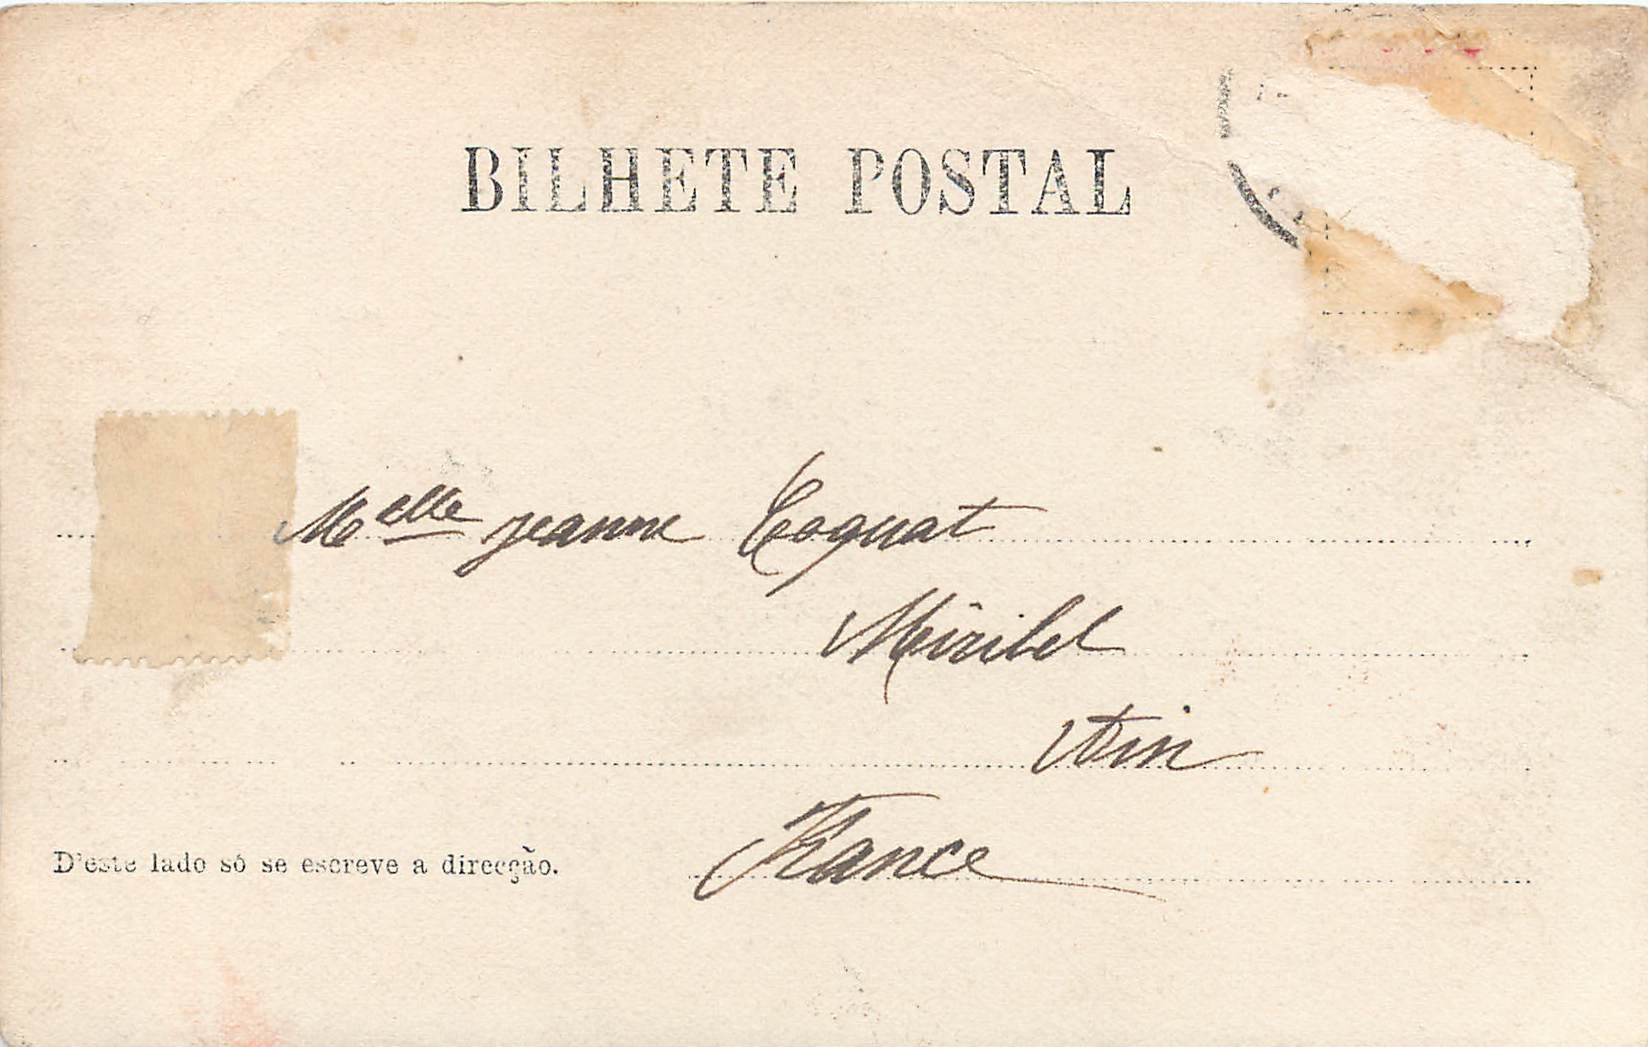 BILHETE POSTAL
Melle Jeanne Coquat
Miribel
Ain
France
D'este lado só se escreve a direcção.